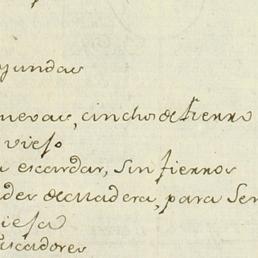 yundas
nuevas, cinchos de fierro
viejo
a escardar, sin fierros
des de madera, para sem
vieja
uscadores